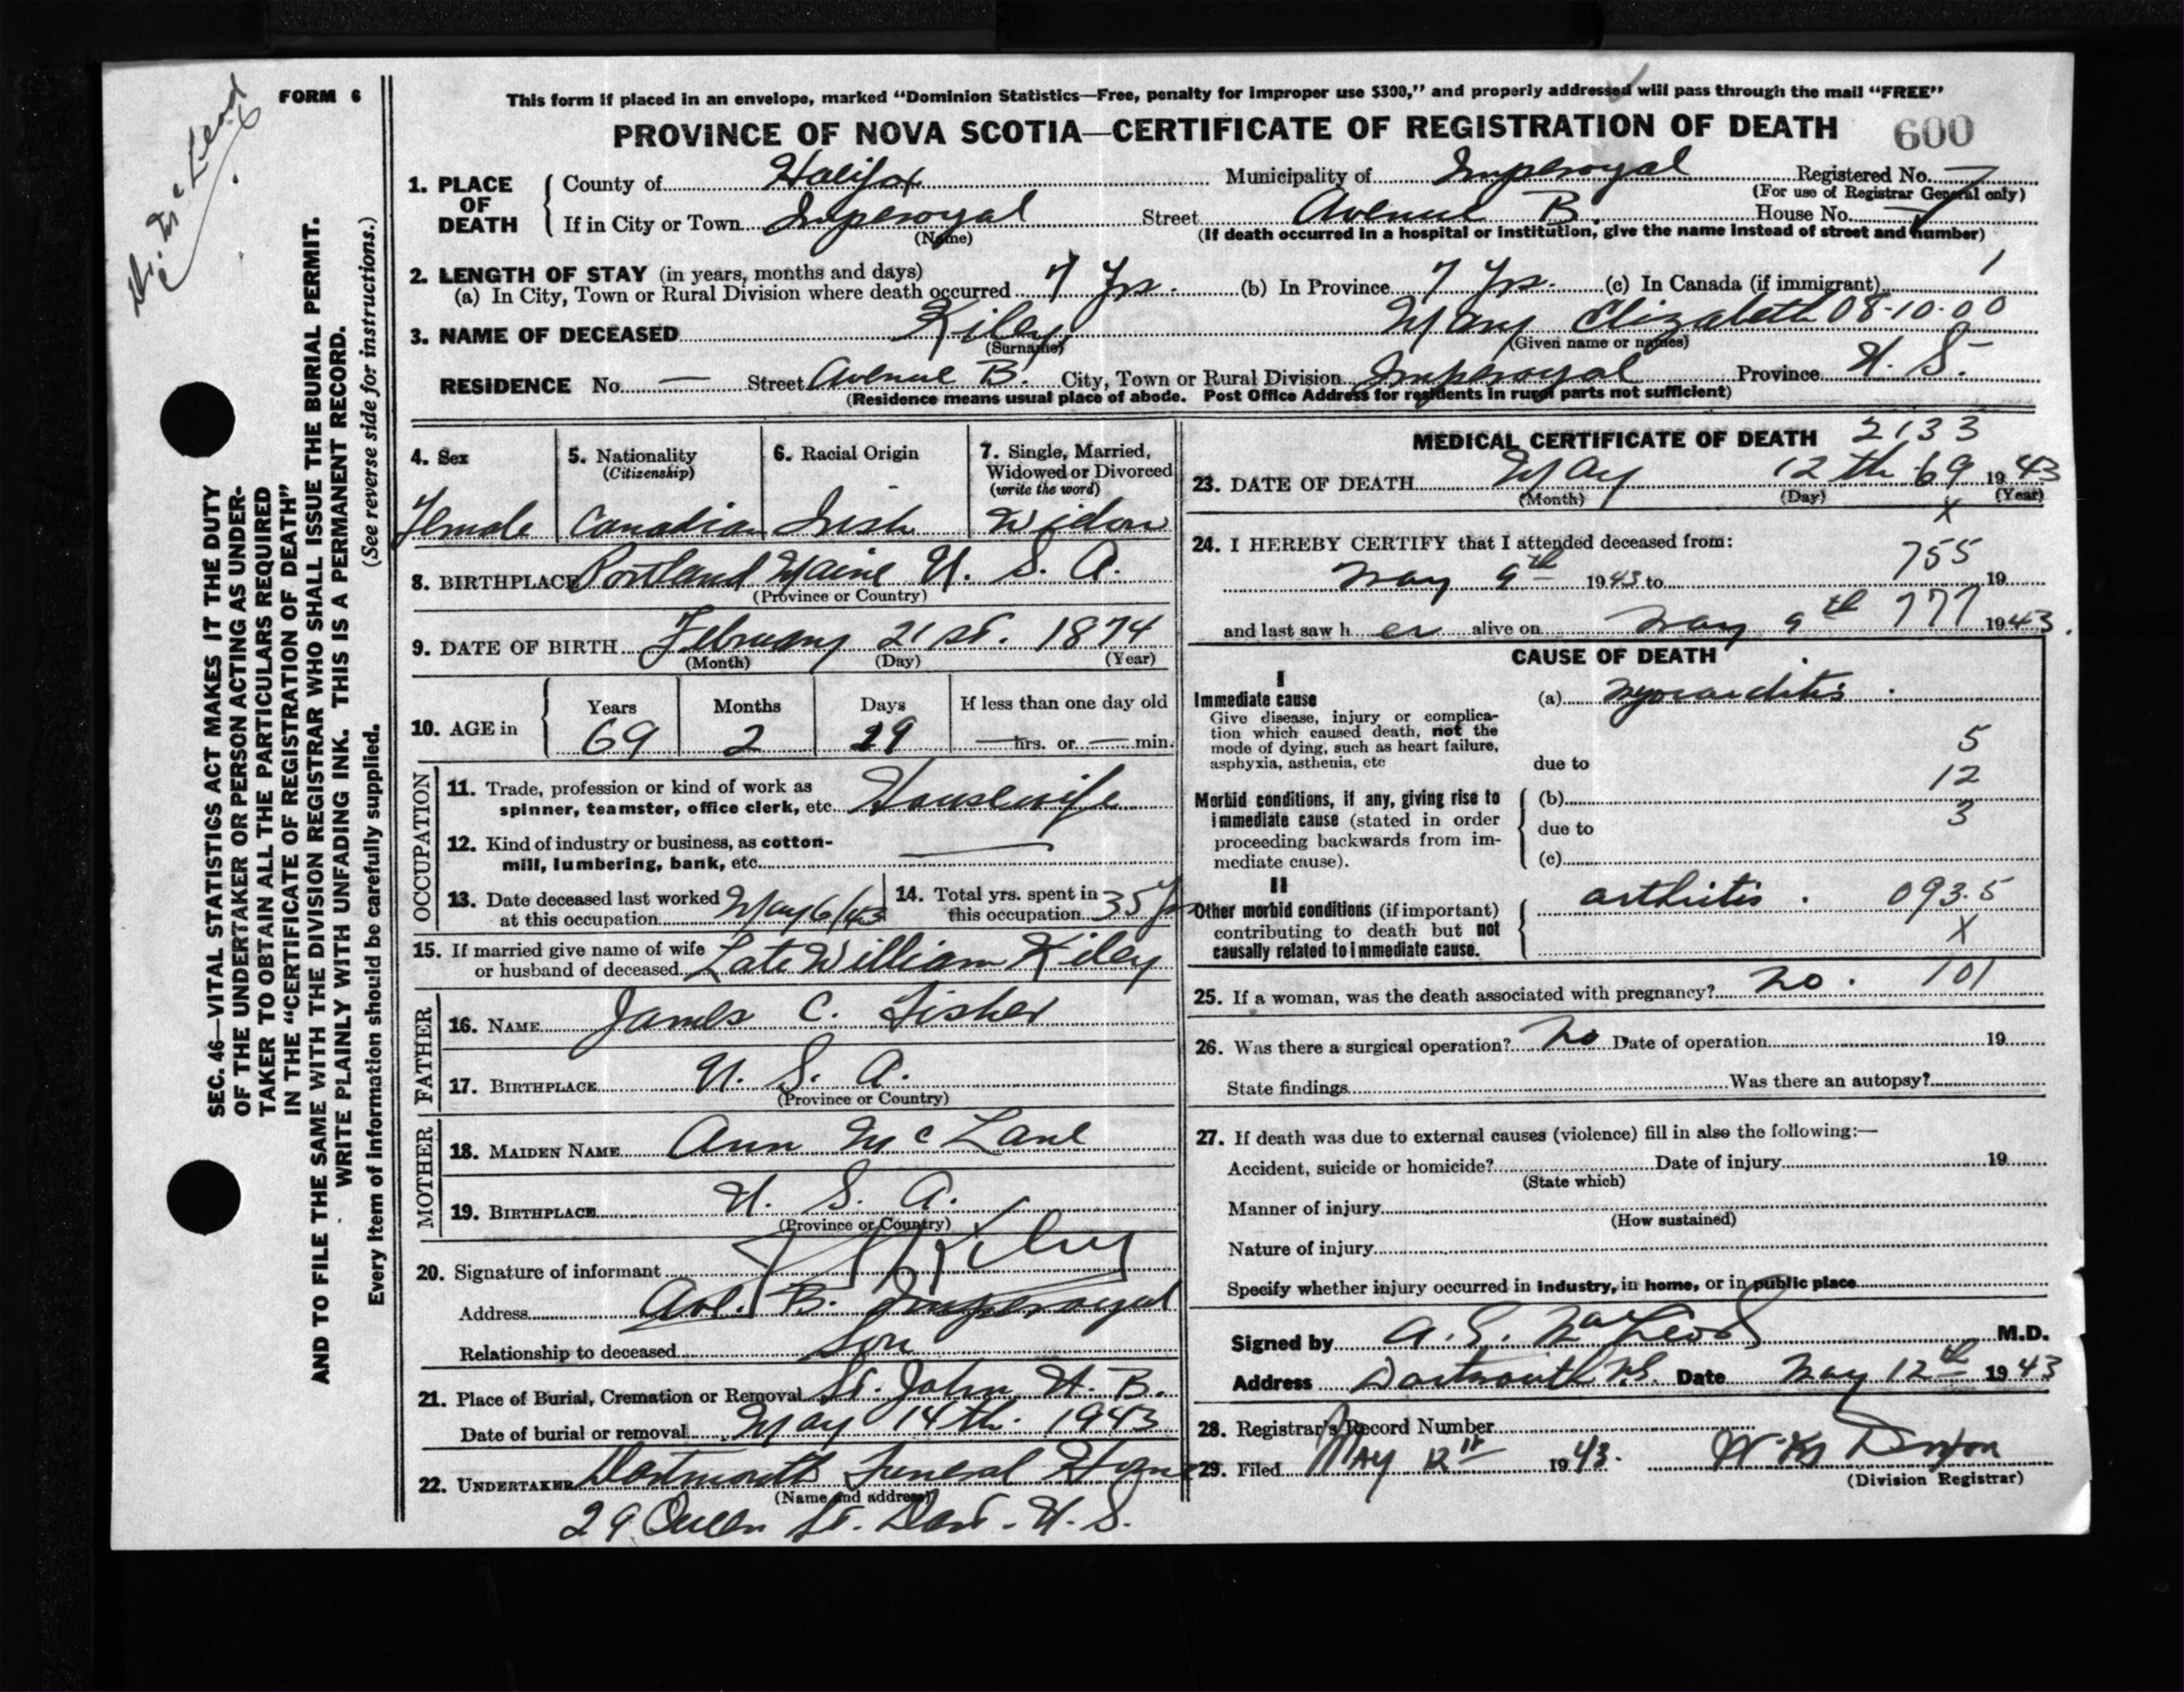 Dr. McLeod
FORM 6
This form if placed in an envelope, marked “Dominion Statistics—Free, penalty for improper use $300,” and properly addressed will pass through the mail “FREE”
PROVINCE OF NOVA SCOTIA—CERTIFICATE OF REGISTRATION OF DEATH 600
SEC. 46—VITAL STATISTICS ACT MAKES IT THE DUTY
OF THE UNDERTAKER OR PERSON ACTING AS UNDER-
TAKER TO OBTAIN ALL THE PARTICULARS REQUIRED
IN THE “CERTIFICATE OF REGISTRATION OF DEATH”
AND TO FILE THE SAME WITH THE DIVISION REGISTRAR WHO SHALL ISSUE THE BURIAL PERMIT.
WRITE PLAINLY WITH UNFADING INK. THIS IS A PERMANENT RECORD.
Every item of information should be carefully supplied. (See reverse side for instructions.)
1. PLACE OF DEATH
County of Halifax Municipality of Imperoyal Registered No. —
(For use of Registrar General only)
If in City or Town Imperoyal Street Avenue B. House No. —
(Name) (If death occurred in a hospital or institution, give the name instead of street and number)
2. LENGTH OF STAY (in years, months and days) 1
(a) In City, Town or Rural Division where death occurred 7 Yrs. (b) In Province 7 Yrs. (c) In Canada (if immigrant)
3. NAME OF DECEASED Kiley Mary Elizabeth 08-10-00
(Surname) (Given name or names)
RESIDENCE No. — Street Avenue B. City, Town or Rural Division Imperoyal Province N. S.
(Residence means usual place of abode. Post Office Address for residents in rural parts not sufficient)
4. Sex 5. Nationality 6. Racial Origin 7. Single, Married,
(Citizenship) Widowed or Divorced
(write the word)
Female Canadian Irish Widow
8. BIRTHPLACE Portland Maine U. S. A.
(Province or Country)
9. DATE OF BIRTH February 21st. 1874
(Month) (Day) (Year)
10. AGE in Years Months Days If less than one day old
69 2 19 — hrs. or — min.
OCCUPATION
11. Trade, profession or kind of work as
spinner, teamster, office clerk, etc. Housewife
12. Kind of industry or business, as cotton-
mill, lumbering, bank, etc. —
13. Date deceased last worked at this occupation May 6/43
14. Total yrs. spent in this occupation 35 yrs
15. If married give name of wife
or husband of deceased Late William Kiley
FATHER
16. NAME James C. Fisher
17. BIRTHPLACE U. S. A.
(Province or Country)
MOTHER
18. MAIDEN NAME Ann McLane
19. BIRTHPLACE U. S. A.
(Province or Country)
20. Signature of informant Kiley
Address Ave. B. Imperoyal
Relationship to deceased Son
21. Place of Burial, Cremation or Removal St. John N. B.
Date of burial or removal May 14th. 1943
22. UNDERTAKER Dartmouth Funeral Home
(Name and address)
29 Queen St. Dart. N. S.
MEDICAL CERTIFICATE OF DEATH 2133
23. DATE OF DEATH May 12th 69 1943
(Month) (Day) (Year)
X
24. I HEREBY CERTIFY that I attended deceased from:
755
May 9th 1943 to 19
and last saw her alive on May 9th 777 1943.
CAUSE OF DEATH
I
Immediate cause (a) Myocarditis.
Give disease, injury or complica-
tion which caused death, not the
mode of dying, such as heart failure,
asphyxia, asthenia, etc due to
5
12
3
Morbid conditions, if any, giving rise to (b)
immediate cause (stated in order due to
proceeding backwards from im-
mediate cause). (c)
II
Other morbid conditions (if important) arthritis. 093.5
contributing to death but not X
causally related to immediate cause.
25. If a woman, was the death associated with pregnancy? no. 101
26. Was there a surgical operation? no Date of operation 19
State findings Was there an autopsy?
27. If death was due to external causes (violence) fill in also the following:—
Accident, suicide or homicide? Date of injury 19
(State which)
Manner of injury
(How sustained)
Nature of injury
Specify whether injury occurred in industry, in home, or in public place
Signed by A. S. MacLeod M.D.
Address Dartmouth N.S. Date May 12th 1943
28. Registrar's Record Number
29. Filed May 12th 1943.
(Division Registrar)